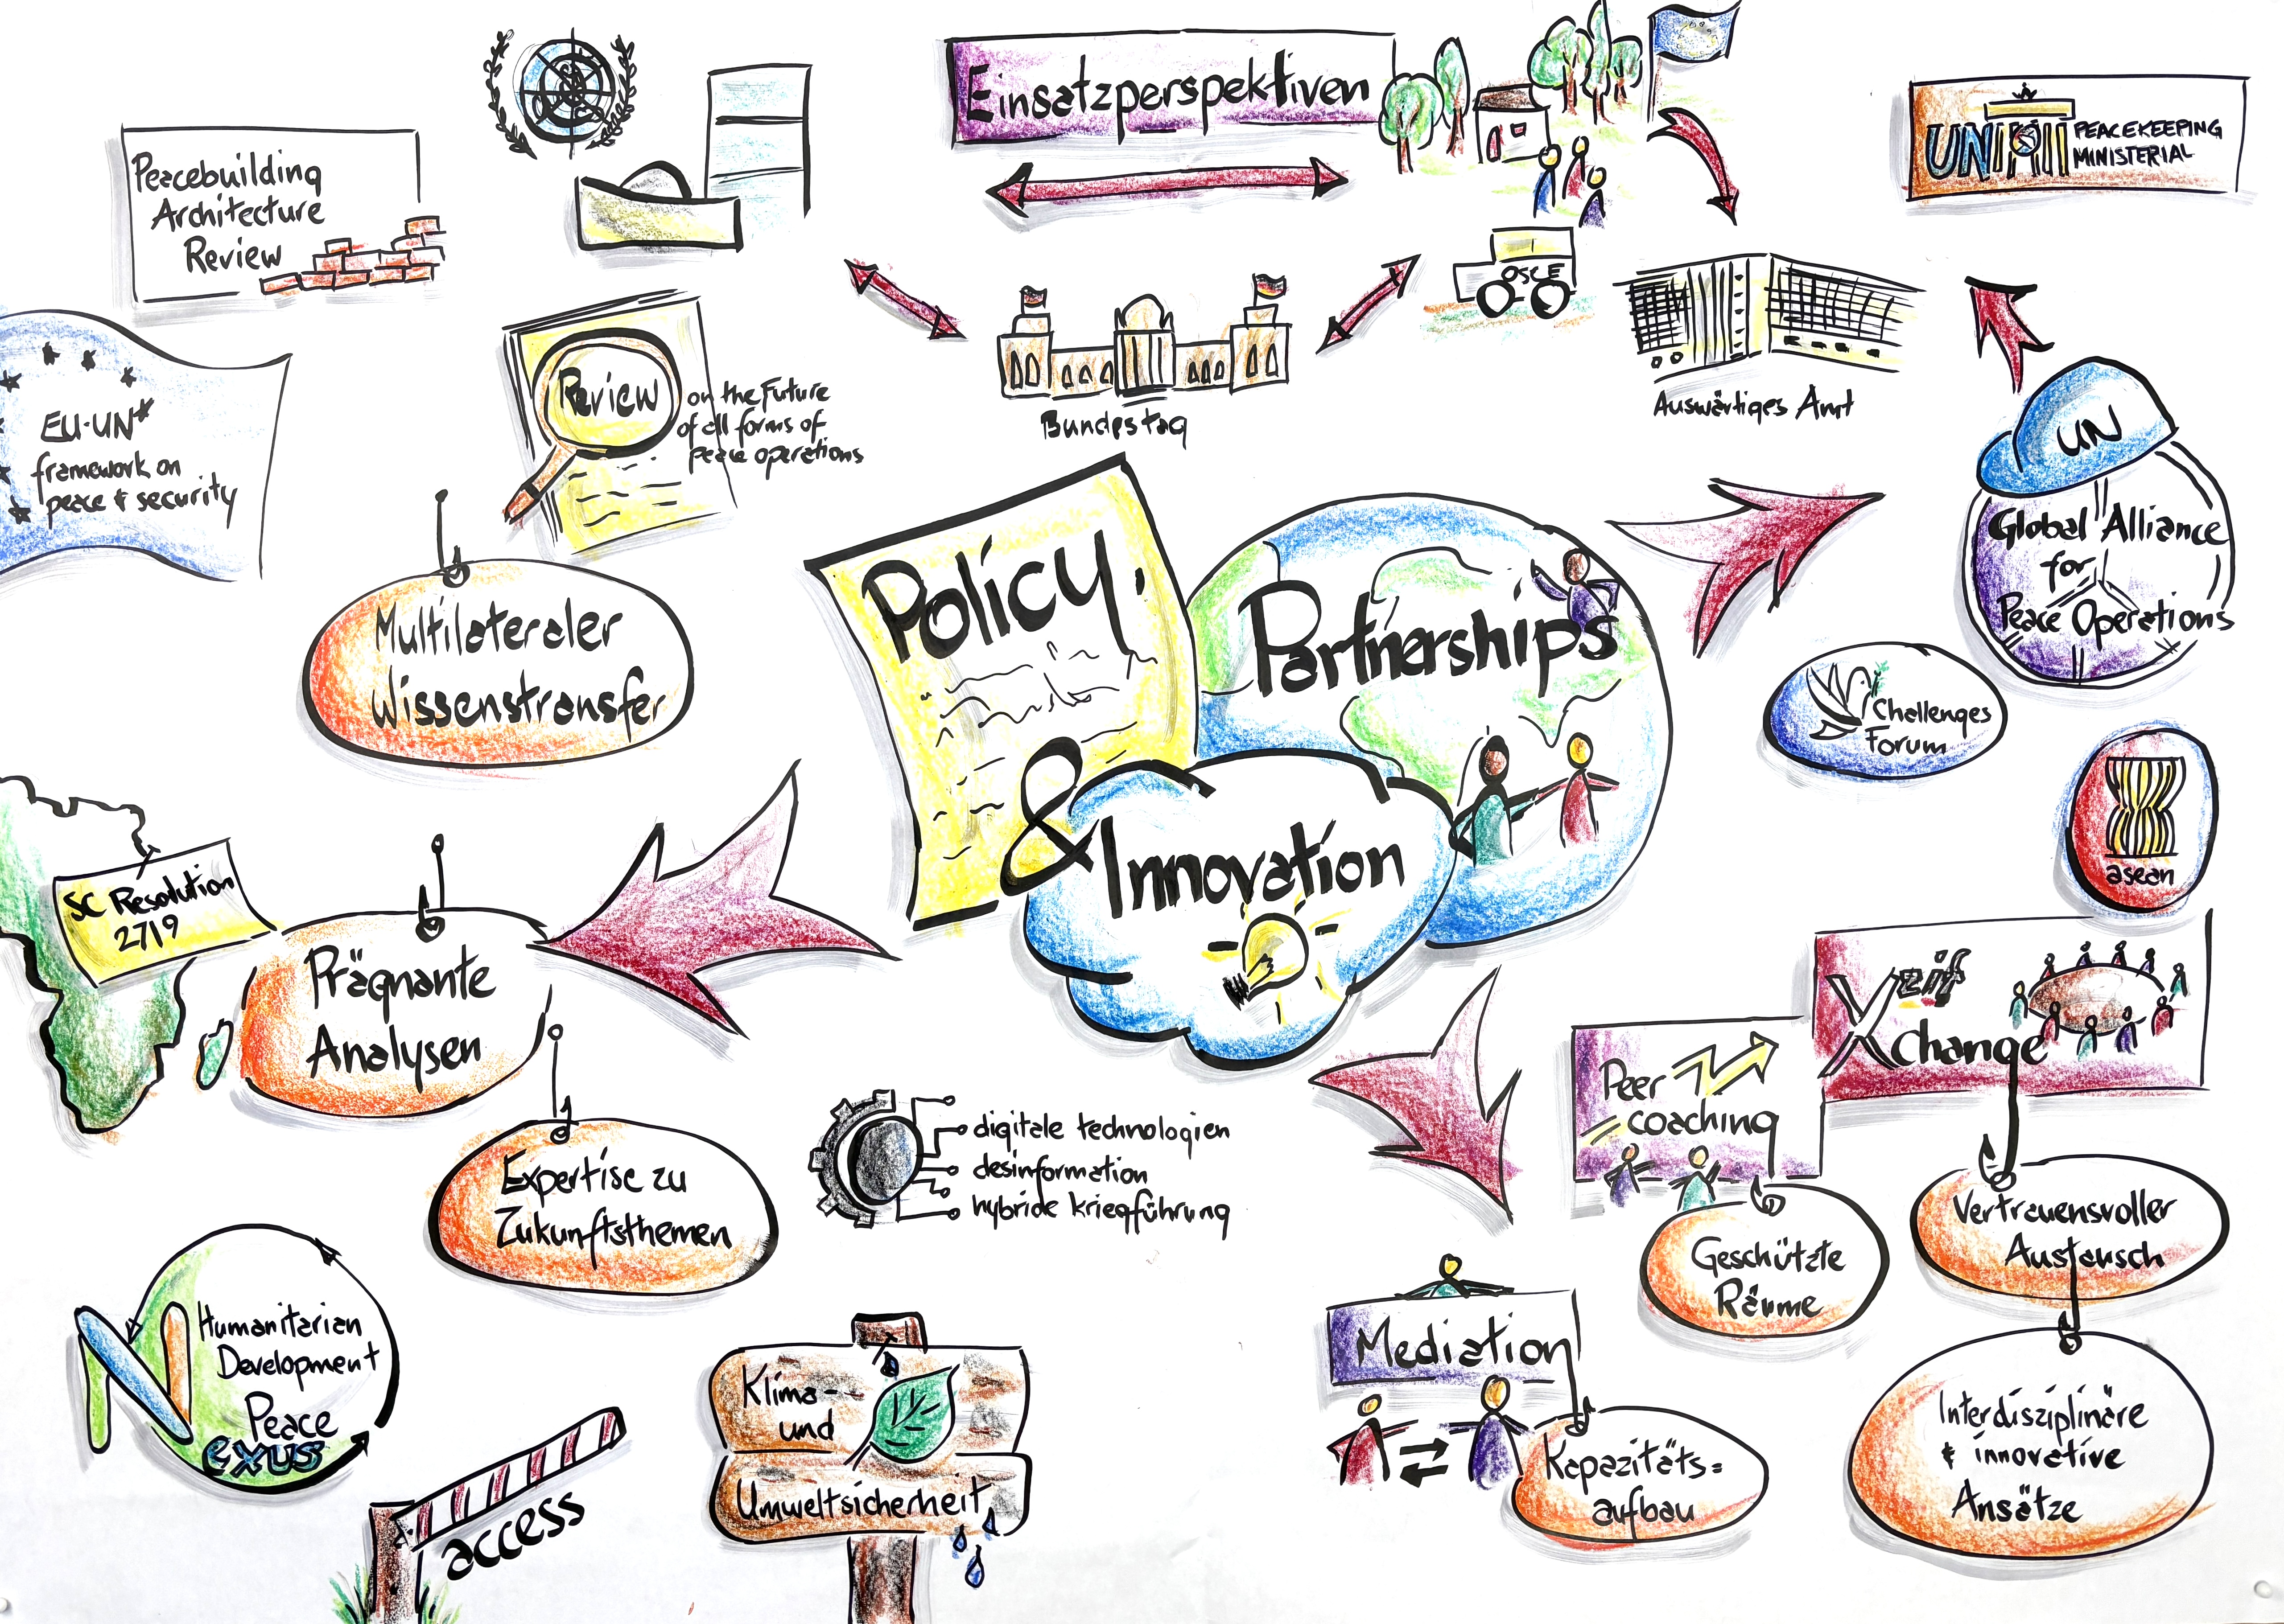 Einsatzperspektiven
Peacebuilding
Architecture
Review
UN
PEACEKEEPING
MINISTERIAL
OSCE
Bundestag
Auswärtiges Amt
EU-UN*
framework on
peace & security
Review
on the Future
of all forms of
peace operations
UN
Global Alliance
for
Peace Operations
Challenges
Forum
asean
Policy,
Partnerships
& Innovation
Multilateraler
Wissenstransfer
SC Resolution
2719
Prägnante
Analysen
Expertise zu
Zukunftsthemen
digitale technologien
desinformation
hybride kriegführung
zif
Xchange
Peer
coaching
Geschützte
Räume
Vertrauensvoller
Austausch
Interdisziplinäre
& innovative
Ansätze
Mediation
Kapazitäts=
aufbau
Humanitarian
Development
Peace
Nexus
access
Klima-
und
Umweltsicherheit